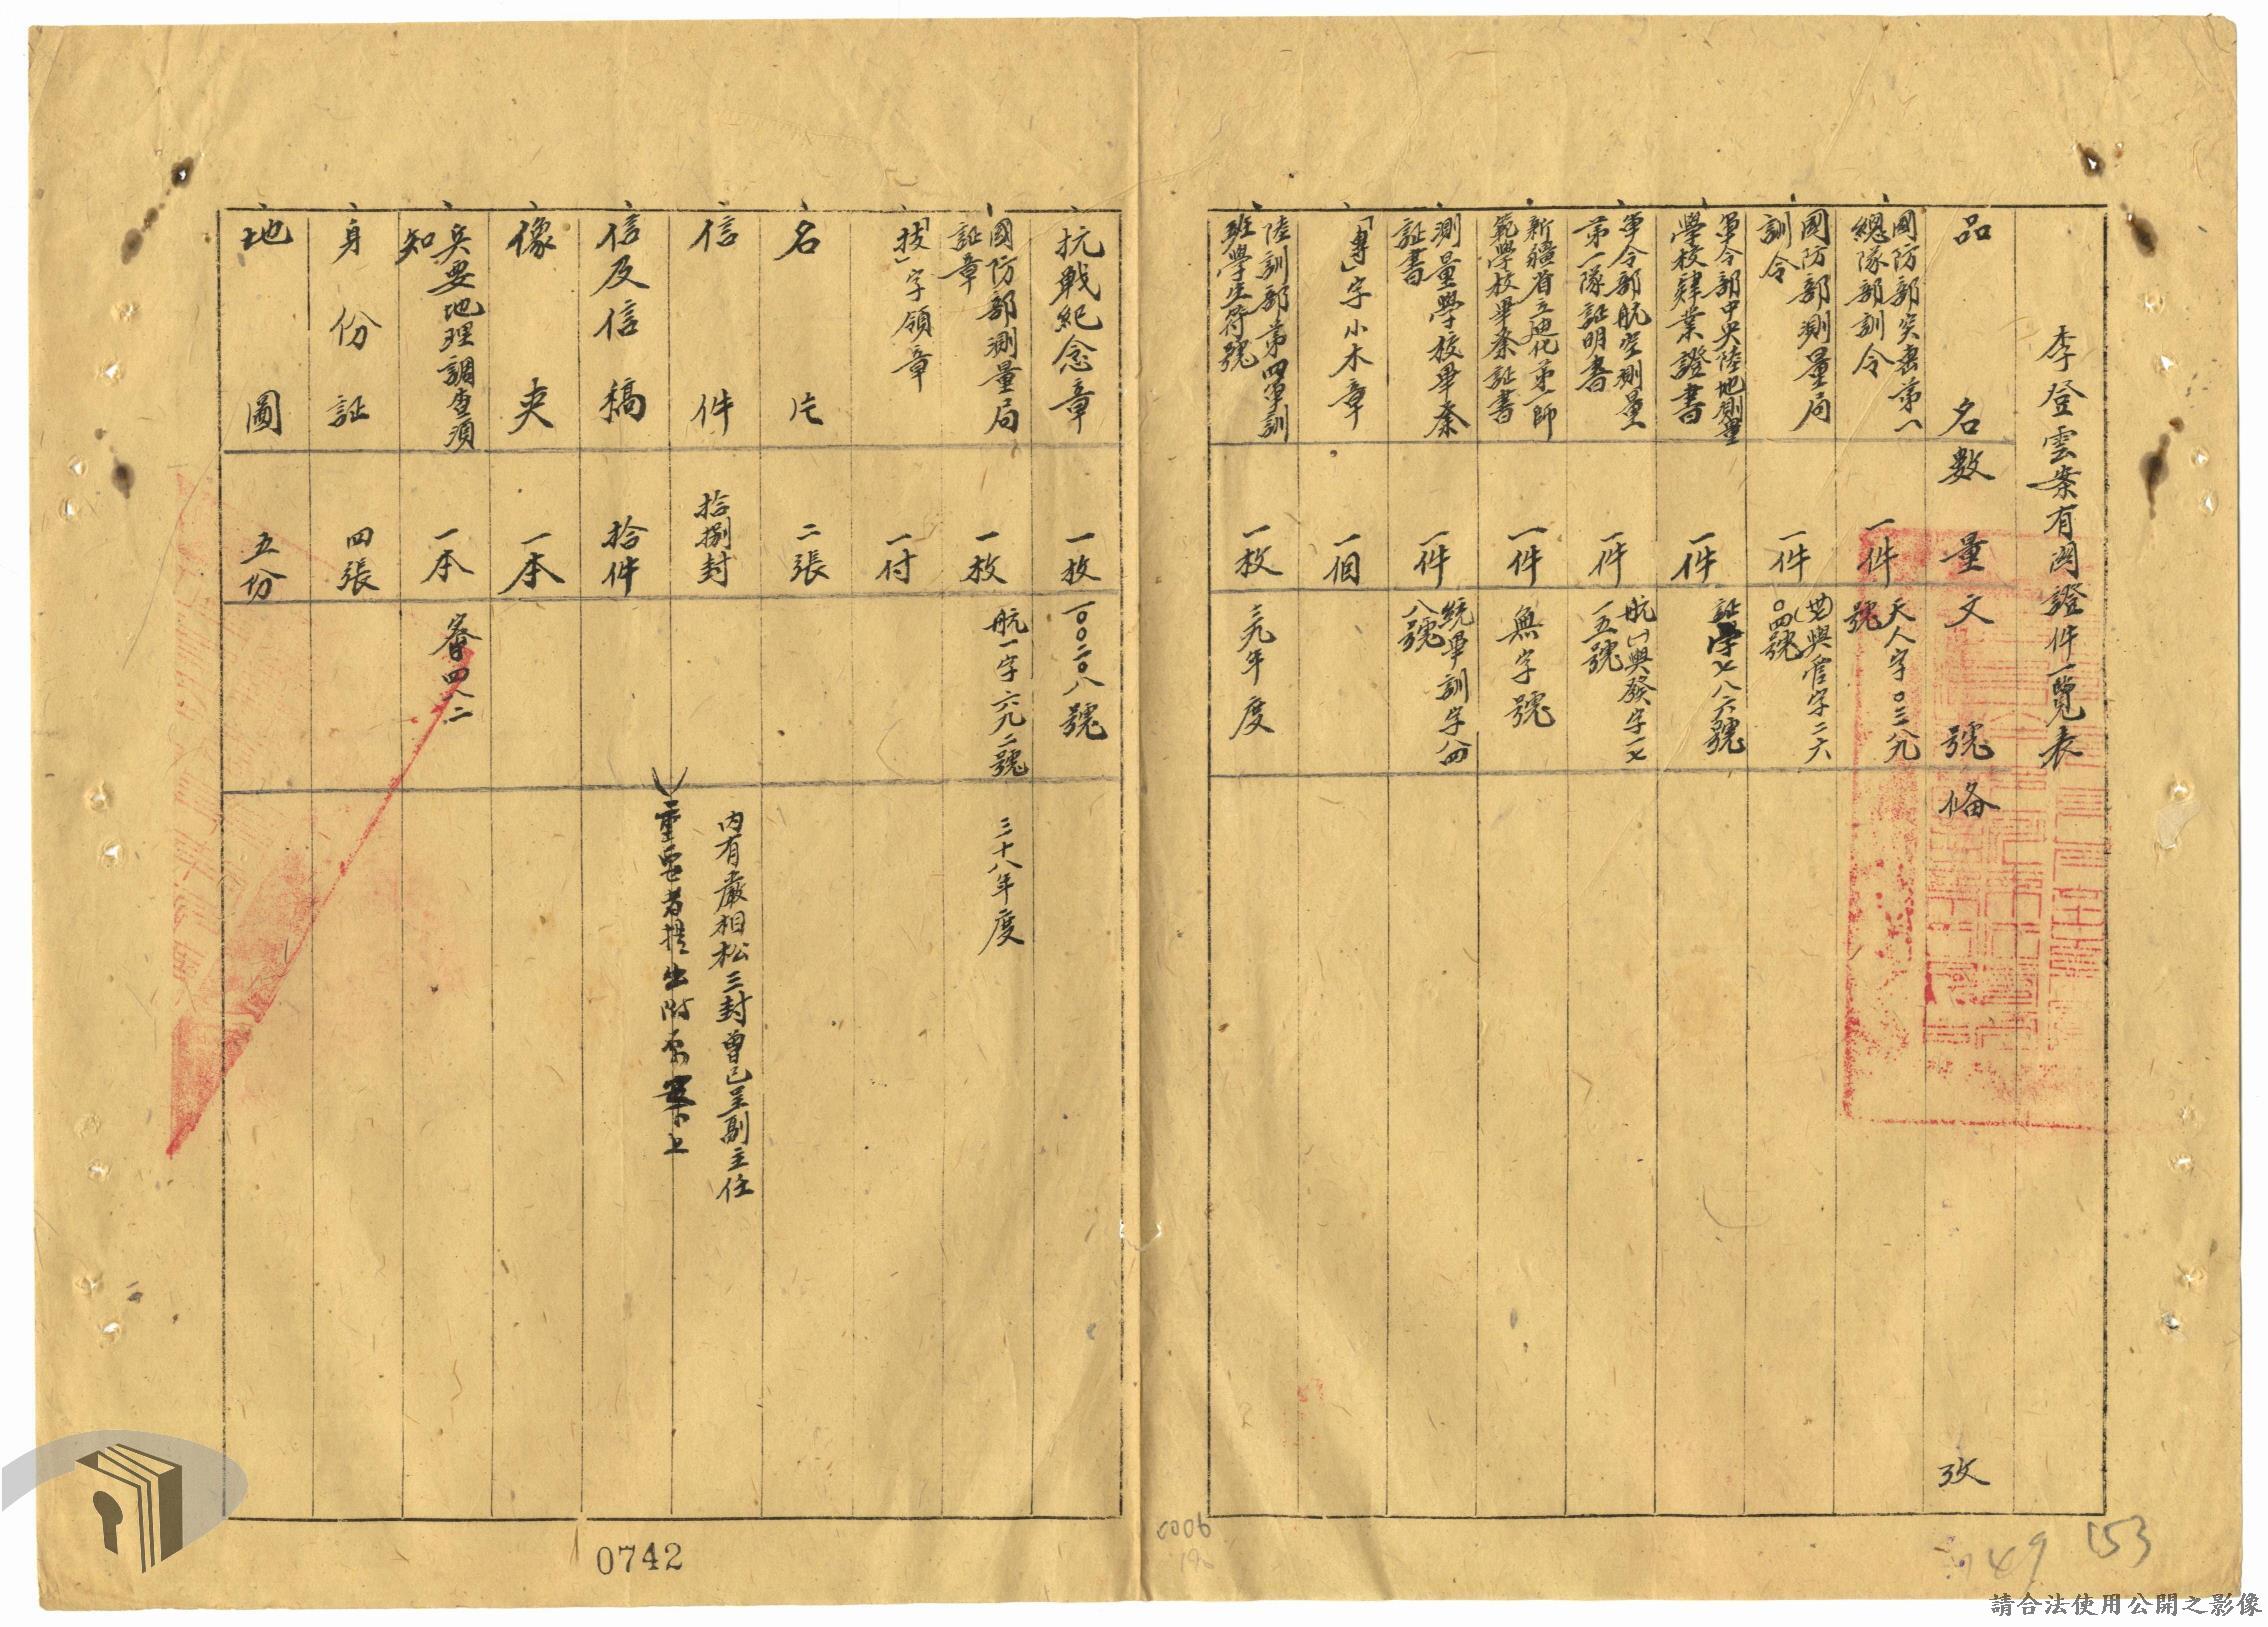 李登雲案有関證件一覽表
品名
數量
文號
備攷
國防部突擊第一
總隊部訓令
一件
天人字〇三八九
號
國防部測量局
訓令
一件
興管字二六
〇四號
軍令部中央陸地測量
學校肄業證書
一件
証字七八六號
軍令部航空測量
第一隊証明書
一件
航(一)興發字一七
一五號
新疆省立迪化第一師
範學校畢業証書
一件
無字號
測量學校畢業
証書
一件
統畢訓字八四
八號
「專」字小木章
一個
陸訓部第四軍訓
班學生符號
一枚
三九年度
抗戰紀念章
一枚
一〇〇二〇八號
國防部測量局
証章
一枚
航一字六九二號
三十八年度
「技」字領章
一付
名片
二張
信件
拾捌封
內有嚴相松三封曾已呈副主任
信及信稿
拾件
重要者提出附原案上
像夾
一本
兵要地理調查須
知
一本
四八二
身份証
四張
地圖
五份
0742
153
49
請合法使用公開之影像